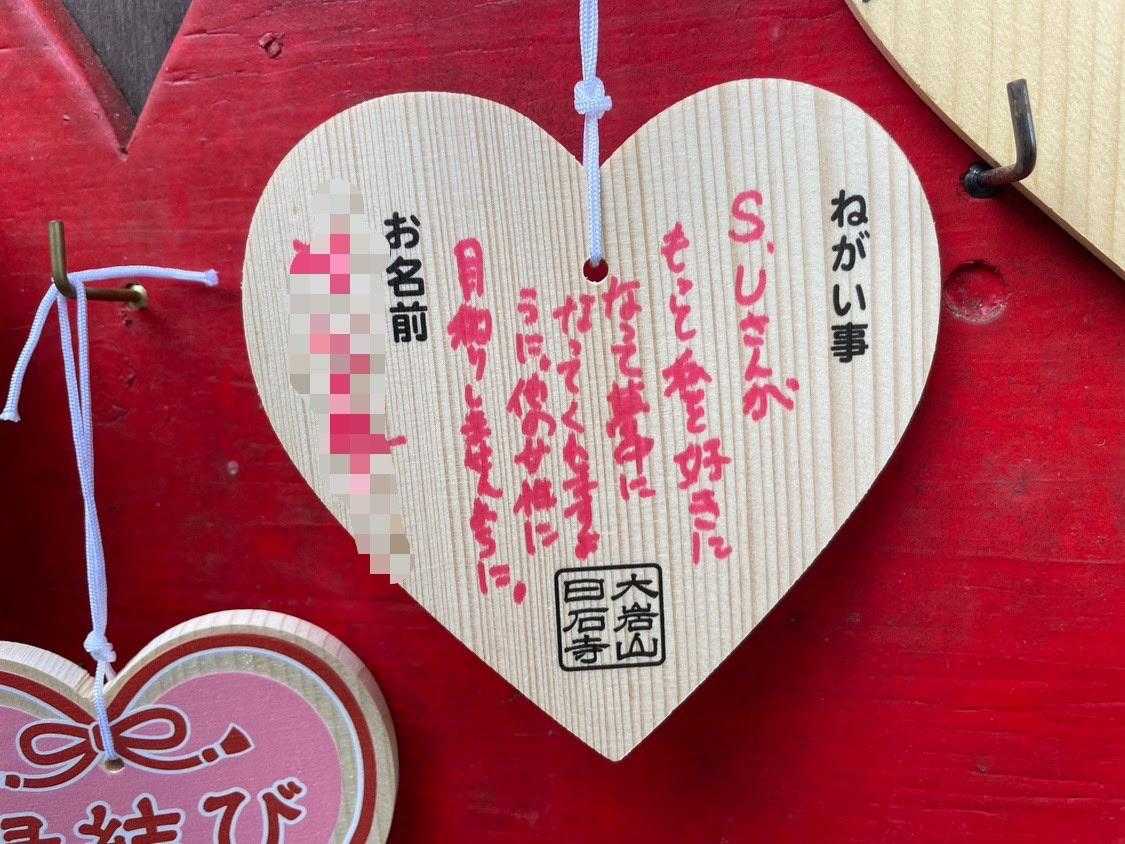 ねがい事
S.Uさんが
もっと私を好きに
なって夢中に
なってくれますよ
うに。他の女性に
目移りしませんように。
お名前
大岩山
日石寺
結び